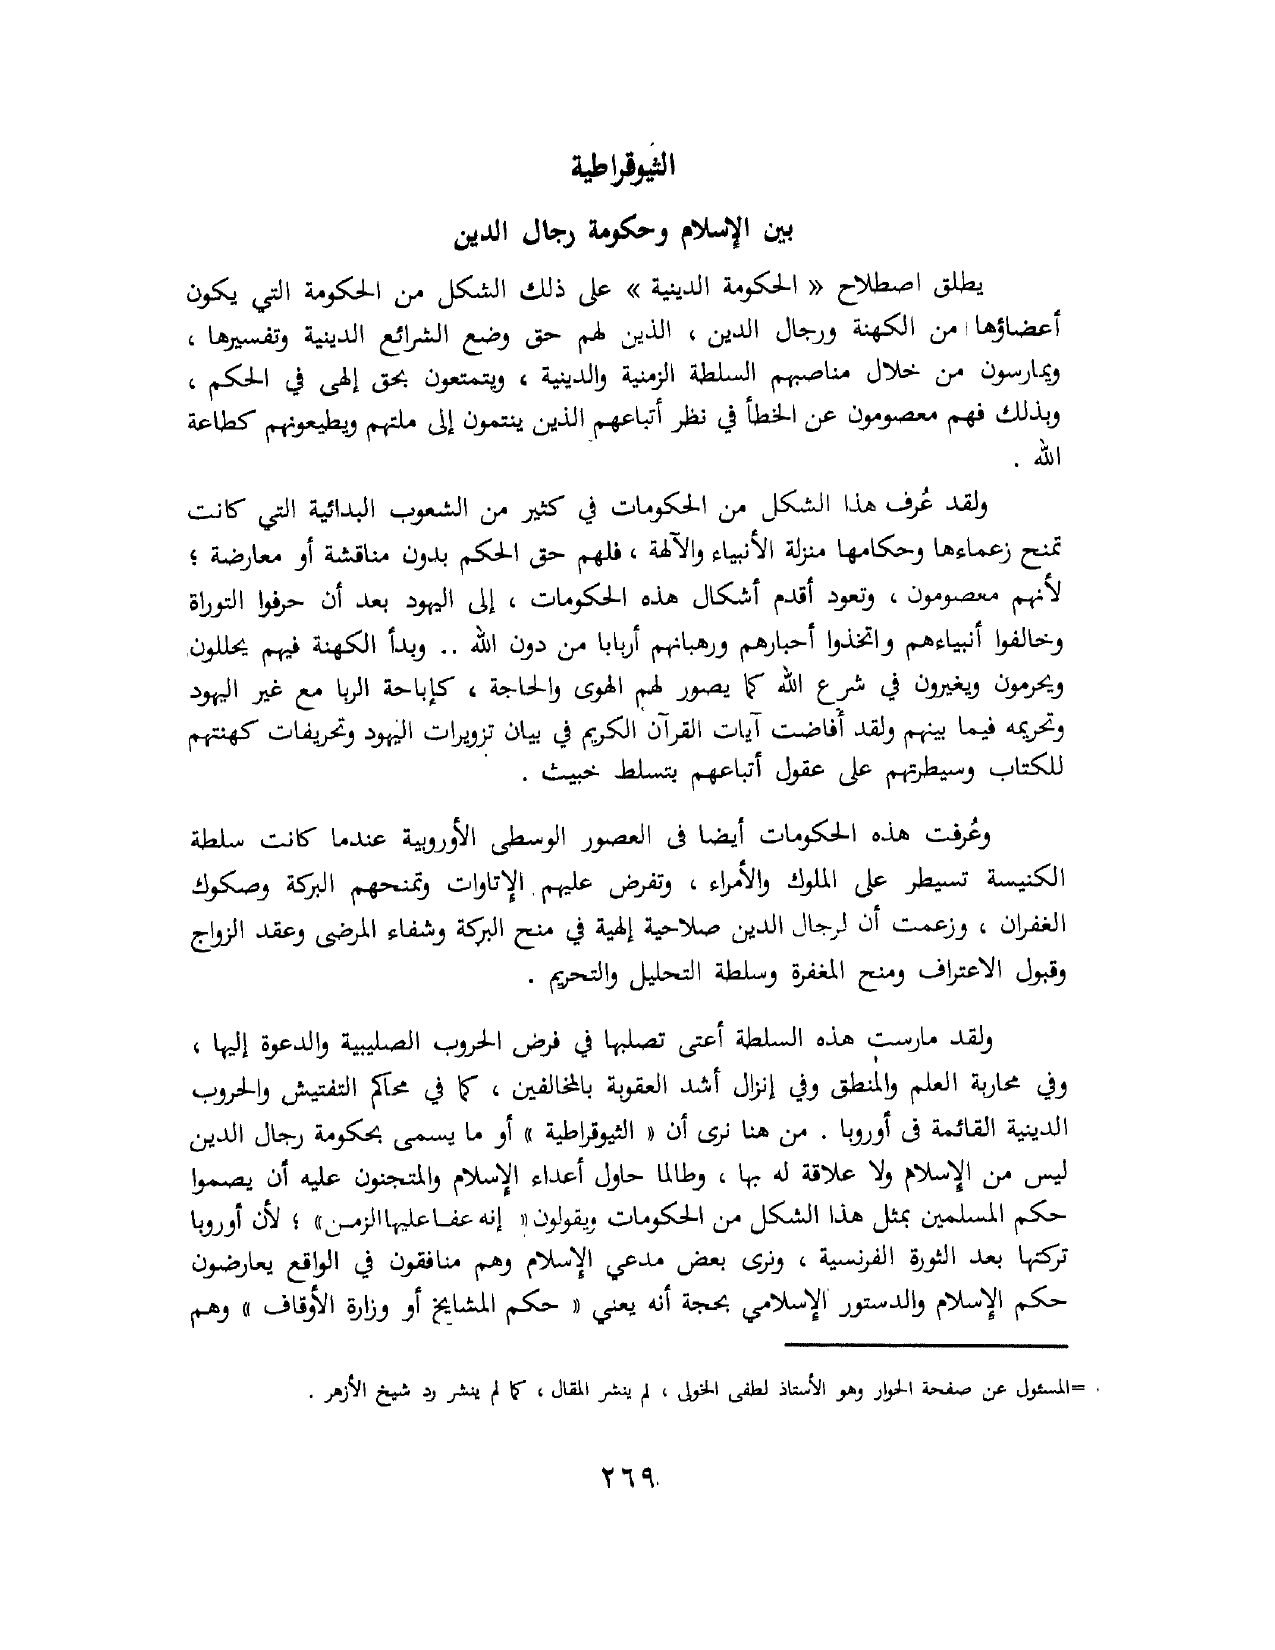 الثيوقراطية
بين الإسلام وحكومة رجال الدين
يطلق اصطلاح « الحكومة الدينية » على ذلك الشكل من الحكومة التي يكون
أعضاؤها من الكهنة ورجال الدين ، الذين لهم حق وضع الشرائع الدينية وتفسيرها ،
ويمارسون من خلال مناصبهم السلطة الزمنية والدينية ، ويتمتعون بحق إلهى في الحكم ،
وبذلك فهم معصومون عن الخطأ في نظر أتباعهم الذين ينتمون إلى ملتهم ويطيعونهم كطاعة
الله .
ولقد عُرف هذا الشكل من الحكومات في كثير من الشعوب البدائية التي كانت
تمنح زعماءها وحكامها منزلة الأنبياء والآلهة ، فلهم حق الحكم بدون مناقشة أو معارضة ؛
لأنهم معصومون ، وتعود أقدم أشكال هذه الحكومات ، إلى اليهود بعد أن حرفوا التوراة
وخالفوا أنبياءهم واتخذوا أحبارهم ورهبانهم أربابا من دون الله .. وبدأ الكهنة فيهم يحللون
ويحرمون ويغيرون في شرع الله كما يصور لهم الهوى والحاجة ، كإباحة الربا مع غير اليهود
وتحريمه فيما بينهم ولقد أفاضت آيات القرآن الكريم في بيان تزويرات اليهود وتحريفات كهنتهم
للكتاب وسيطرتهم على عقول أتباعهم بتسلط خبيث .
وعُرفت هذه الحكومات أيضا فى العصور الوسطى الأوروبية عندما كانت سلطة
الكنيسة تسيطر على الملوك والأمراء ، وتفرض عليهم الإتاوات وتمنحهم البركة وصكوك
الغفران ، وزعمت أن لرجال الدين صلاحية إلهية في منح البركة وشفاء المرضى وعقد الزواج
وقبول الاعتراف ومنح المغفرة وسلطة التحليل والتحريم .
ولقد مارست هذه السلطة أعتى تصلبها في فرض الحروب الصليبية والدعوة إليها ،
وفي محاربة العلم والمنطق وفي إنزال أشد العقوبة بالمخالفين ، كما في محاكم التفتيش والحروب
الدينية القائمة فى أوروبا . من هنا نرى أن « الثيوقراطية » أو ما يسمى بحكومة رجال الدين
ليس من الإسلام ولا علاقة له بها ، وطالما حاول أعداء الإسلام والمتجنون عليه أن يصموا
حكم المسلمين بمثل هذا الشكل من الحكومات ويقولون « إنه عفا عليها الزمن » ؛ لأن أوروبا
تركتها بعد الثورة الفرنسية ، ونرى بعض مدعي الإسلام وهم منافقون في الواقع يعارضون
حكم الإسلام والدستور الإسلامي بحجة أنه يعني « حكم المشايخ أو وزارة الأوقاف » وهم
=المسئول عن صفحة الحوار وهو الأستاذ لطفى الخولى ، لم ينشر المقال ، كما لم ينشر رد شيخ الأزهر .
٢٦٩